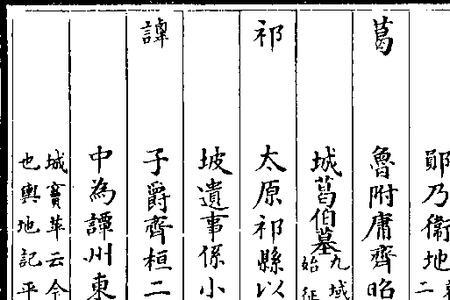 乃衞地
二
葛
魯附庸齊昭
城葛伯墓
九域
始征
祁
太原祁縣以
坡遺事係小
譚
子爵齊桓二
中為譚州東
城竇苹云今
也輿地記平